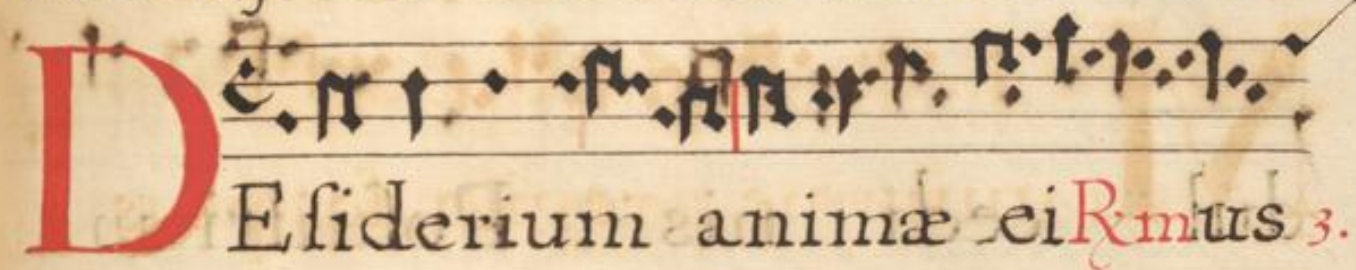 DEſiderium animæ ei℟mus 3.